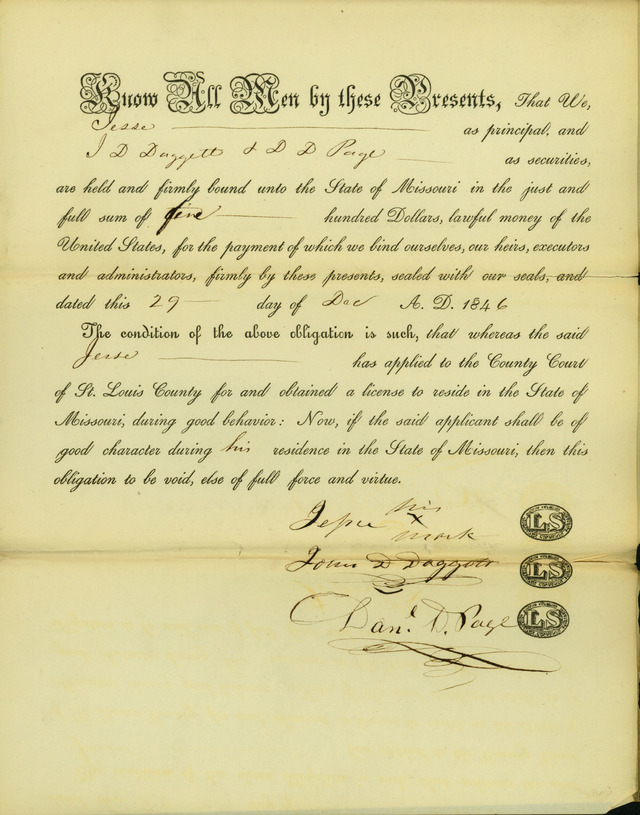 Know All Men by these Presents, That We,
Jesse as principal, and
J D Daggett & D D Page as securities,
are held and firmly bound unto the State of Missouri in the just and
full sum of five hundred Dollars, lawful money of the
United States, for the payment of which we bind ourselves, our heirs, executors
and administrators, firmly by these presents, sealed with our seals, and
dated this 29 day of Dec A. D. 1846
The condition of the above obligation is such, that whereas the said
Jesse has applied to the County Court
of St. Louis County for and obtained a license to reside in the State of
Missouri, during good behavior: Now, if the said applicant shall be of
good character during his residence in the State of Missouri, then this
obligation to be void, else of full force and virtue.
his
Jesse x LS
mark
John D Daggett LS
Danl. D. Page LS